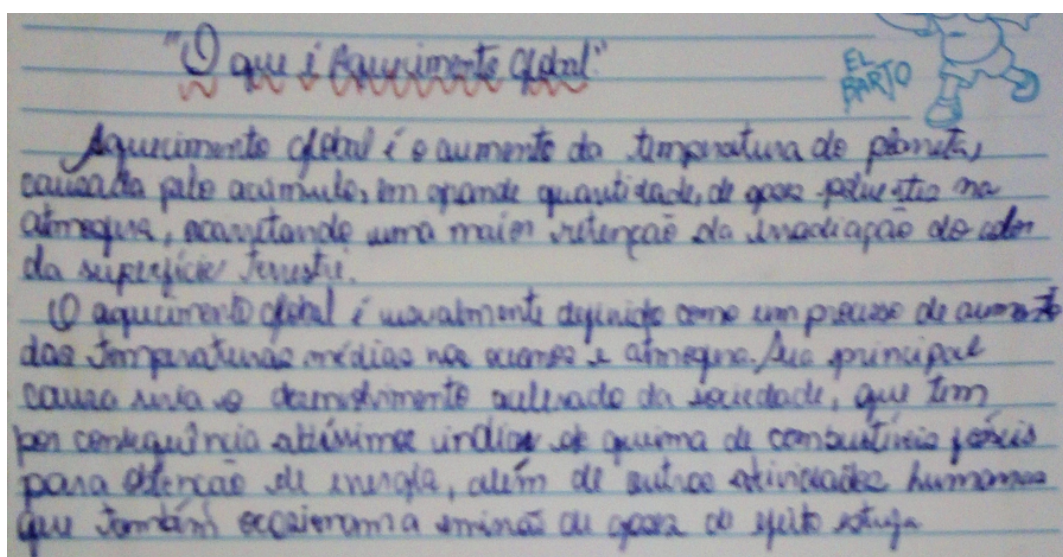 "O que é Aquecimento Global"
EL
BARTO
Aquecimento global é o aumento da temperatura do planeta,
causada pelo acúmulo, em grande quantidade, de gases poluentes na
atmosfera, acarretando uma maior retenção da irradiação do calor
da superfície terrestre.
O aquecimento global é usualmente definido como um processo de aumento
das temperaturas médias nos oceanos e atmosfera. Sua principal
causa seria o desenvolvimento acelerado da sociedade, que tem
por consequência altíssimos índices de queima de combustíveis fósseis
para obtenção de energia, além de outras atividades humanas
que também ocasionam a emissão de gases do efeito estufa.